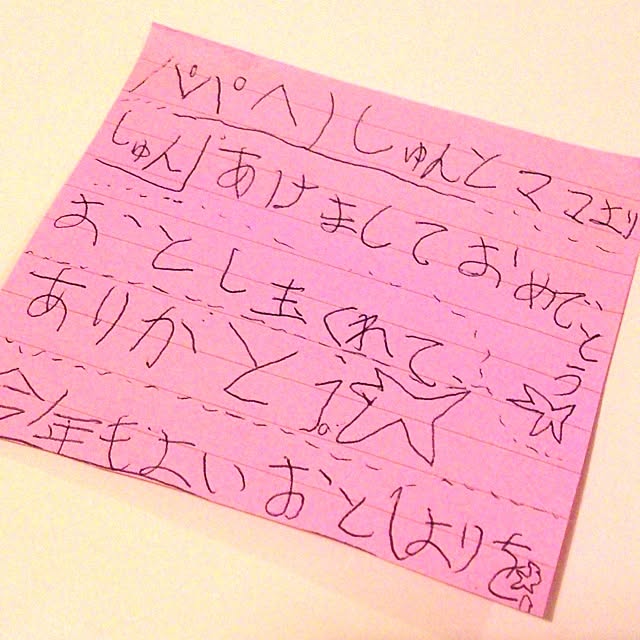 パパへ)しゅんとママより
しゅん あけましておめでとう☆
おとし玉くれて、
ありがと!。☆
今年もよいおとしよりを